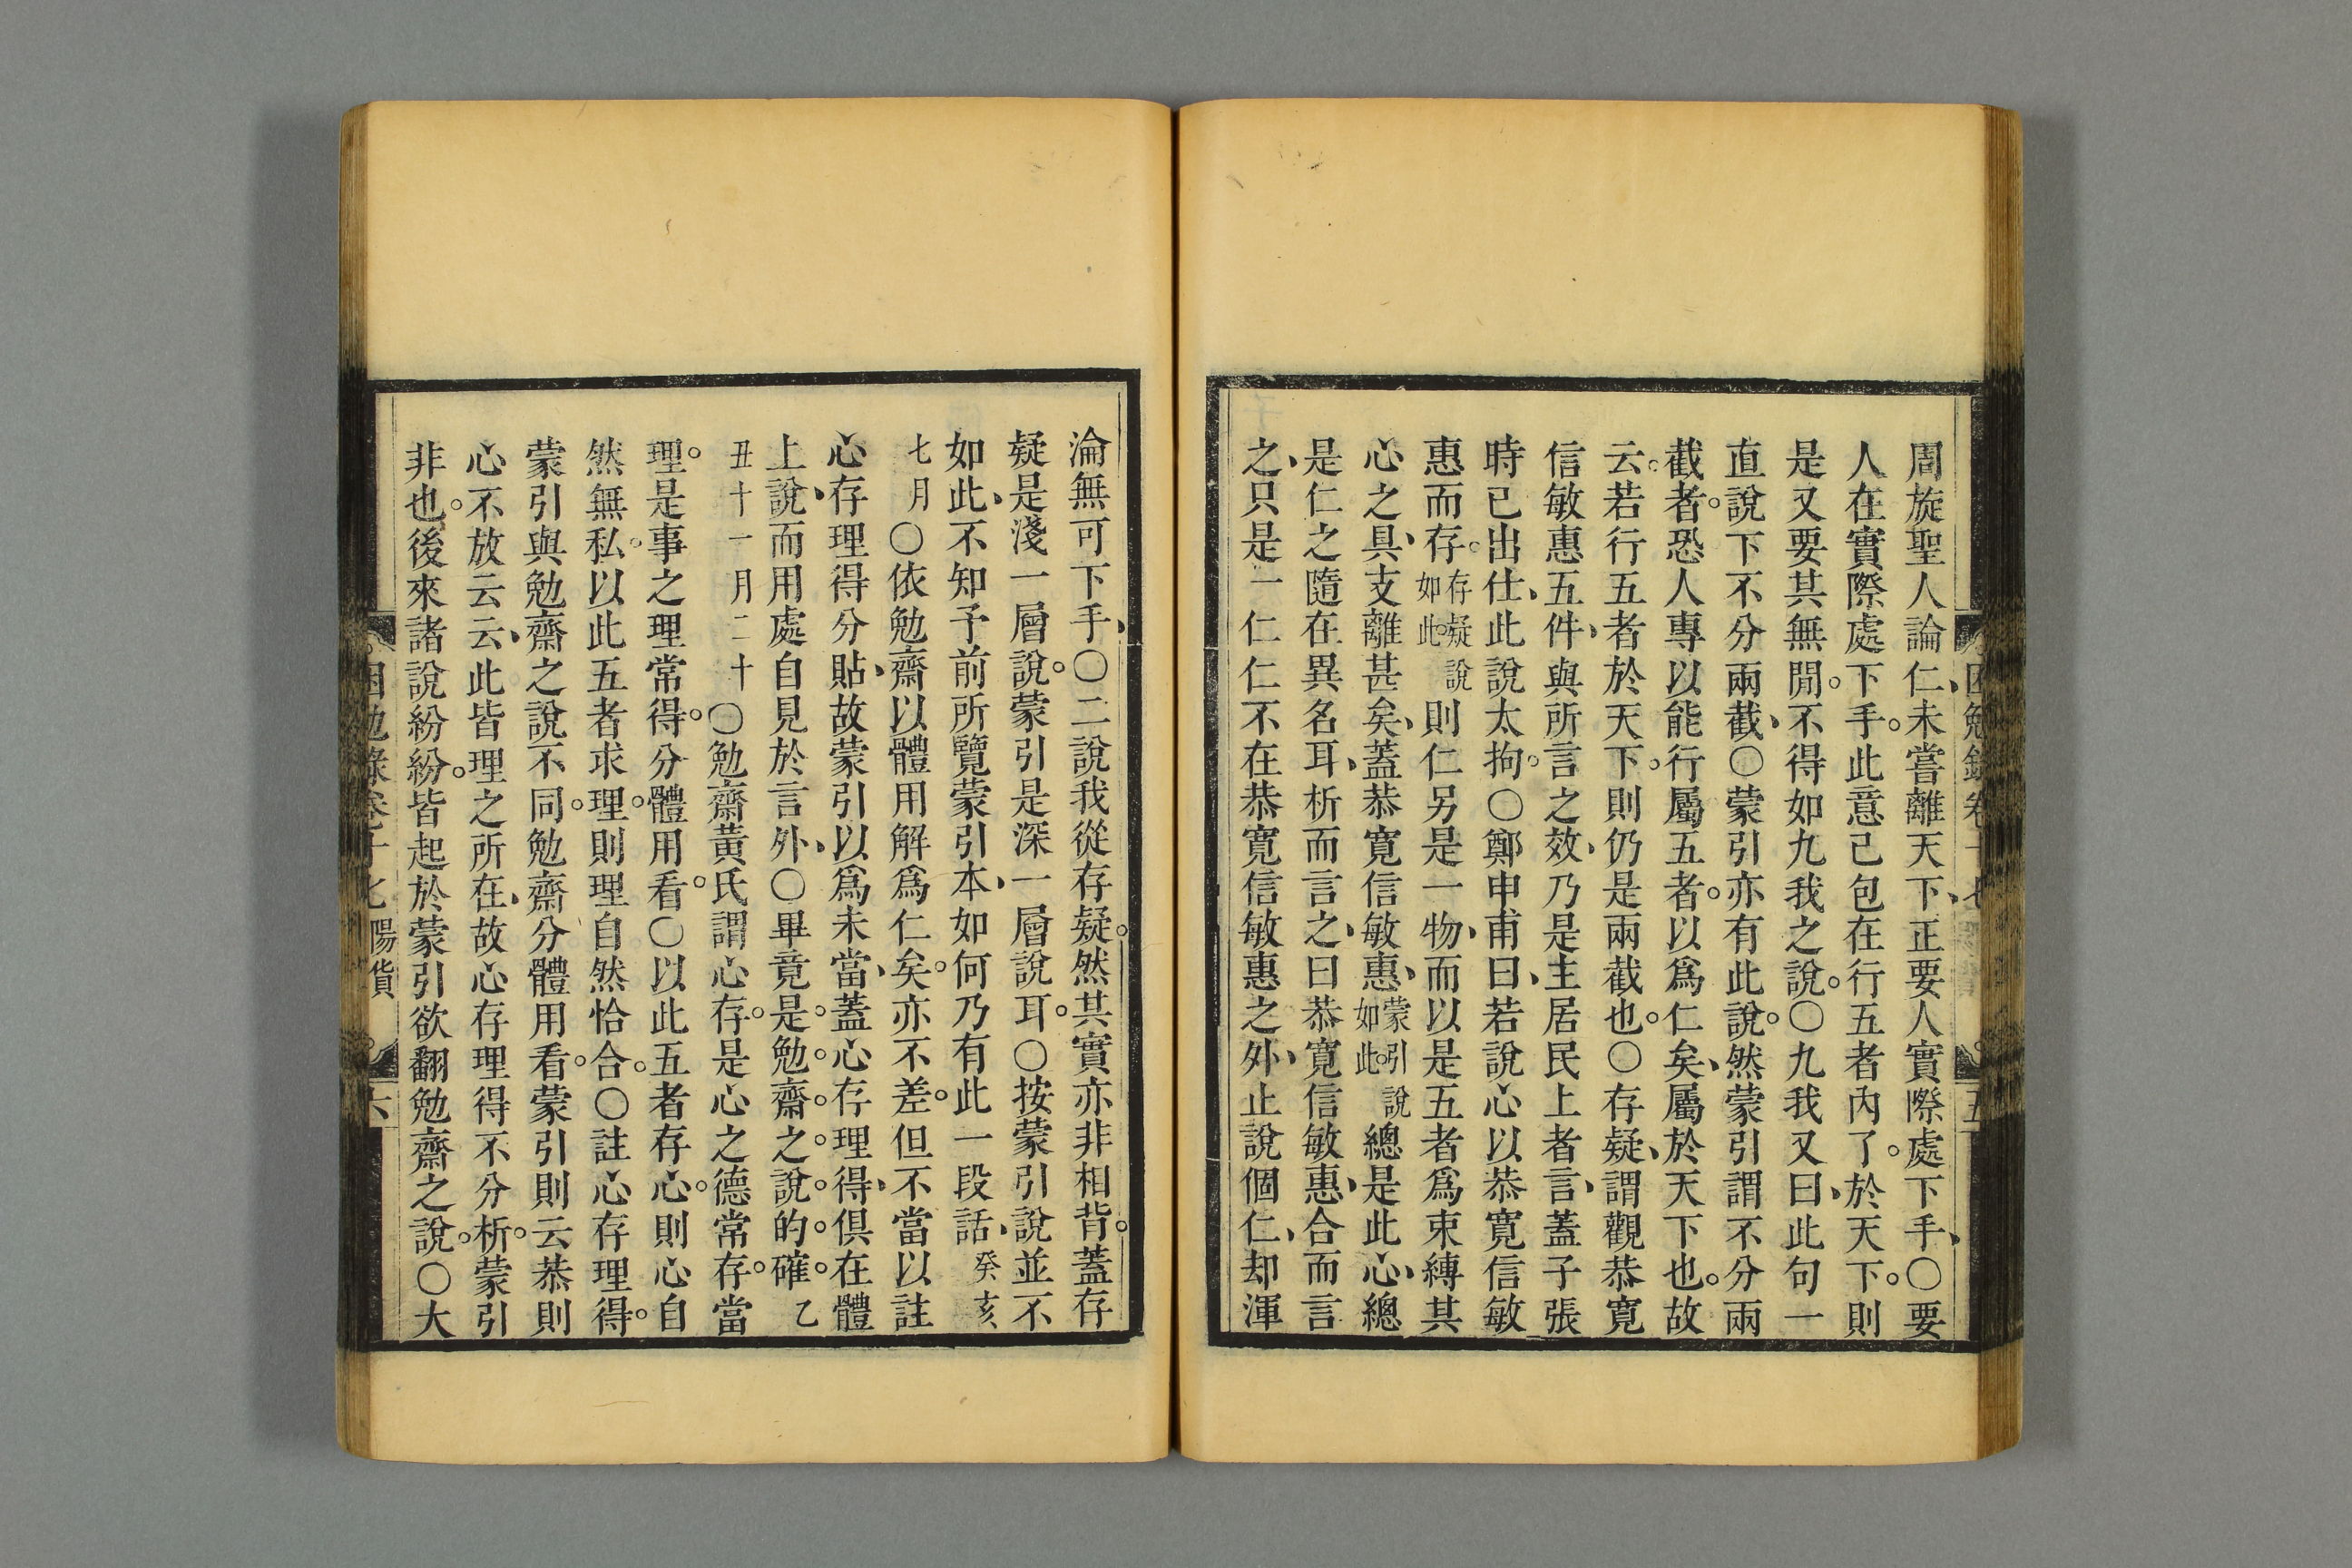 周旋聖人論仁、未嘗離天下、正要人實際處下手、○要
人在實際處下手。此意已包在行五者內了。於天下。則
是又要其無閒。不得如九我之說。○九我又曰、此句一
直說下不分兩截、○蒙引亦有此說。然蒙引謂不分兩
截者。恐人專以能行屬五者。以爲仁矣、屬於天下也。故
云。若行五者於天下。則仍是兩截也。○存疑、謂觀恭寬
信敏惠五件、與所言之效、乃是主居民上者言、蓋子張
時已出仕、此說太拘。○鄭申甫曰、若說心以恭寬信敏
惠而存。存疑說如此。則仁另是一物、而以是五者爲束縛其
心之具、支離甚矣、蓋恭寬信敏惠、蒙引說如此。總是此心、總
是仁之隨在異名耳、析而言之、曰恭寬信敏惠、合而言
之、只是一仁仁不在恭寬信敏惠之外、止說個仁、却渾
困勉錄卷十七 五
淪無可下手、○二說我從存疑。然其實亦非相背。蓋存
疑是淺一層說。蒙引是深一層說耳。○按蒙引說並不
如此、不知予前所覽蒙引本、如何乃有此一段話、癸亥
七月○依勉齋以體用解爲仁矣。亦不差。但不當以註
心存理得分貼、故蒙引以爲未當、蓋心存理得、俱在體
上說、而用處自見於言外、○畢竟是。勉。齋。之。說。的。確。乙
丑十一月二十○勉齋黃氏謂心存。是心之德常存。當
理。是事之理常得。分體用看。○以此五者存心。則心自
然無私。以此五者求理。則理自然恰合。○註心存理得。
蒙引與勉齋之說不同。勉齋分體用看。蒙引則云恭則
心不放云云、此皆理之所在、故心存理得不分析。蒙引
非也。後來諸說紛紛。皆起於蒙引欲翻勉齋之說。○大
困勉錄卷十七 陽貨 六